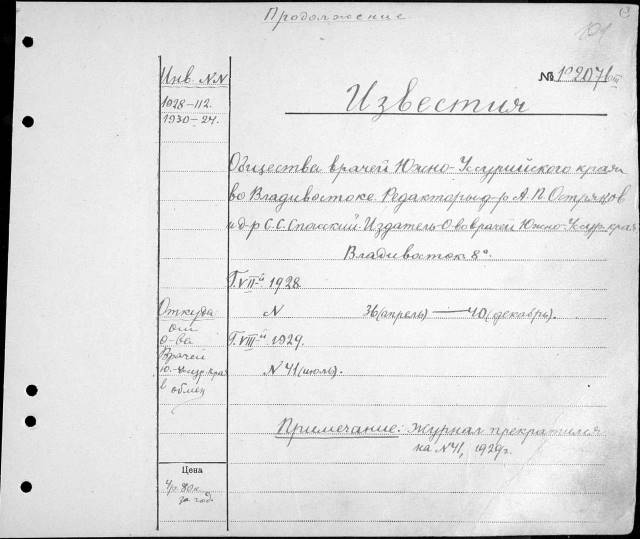 Продолжение
101
Инв. NN
1928-112.
1930-24.
№ 1º2071
Известия
Общества врачей Южно-Уссурийского края
во Владивостоке. Редакторы д-р А.П. Острянов
и д-р С.С. Спасский. Издатель О-во врачей Южно-Уссур. края
Владивосток 8º.
Г. VII-й 1928
N 36(апрель)—40(декабрь).
Г. VIII-й 1929.
N 41(июль).
Откуда
от
о-ва
Врачей
Ю.-Уссур. края
в обмен
Примечание: Журнал прекратился
на N 41, 1929г.
Цена
4р. 80к.
за год.